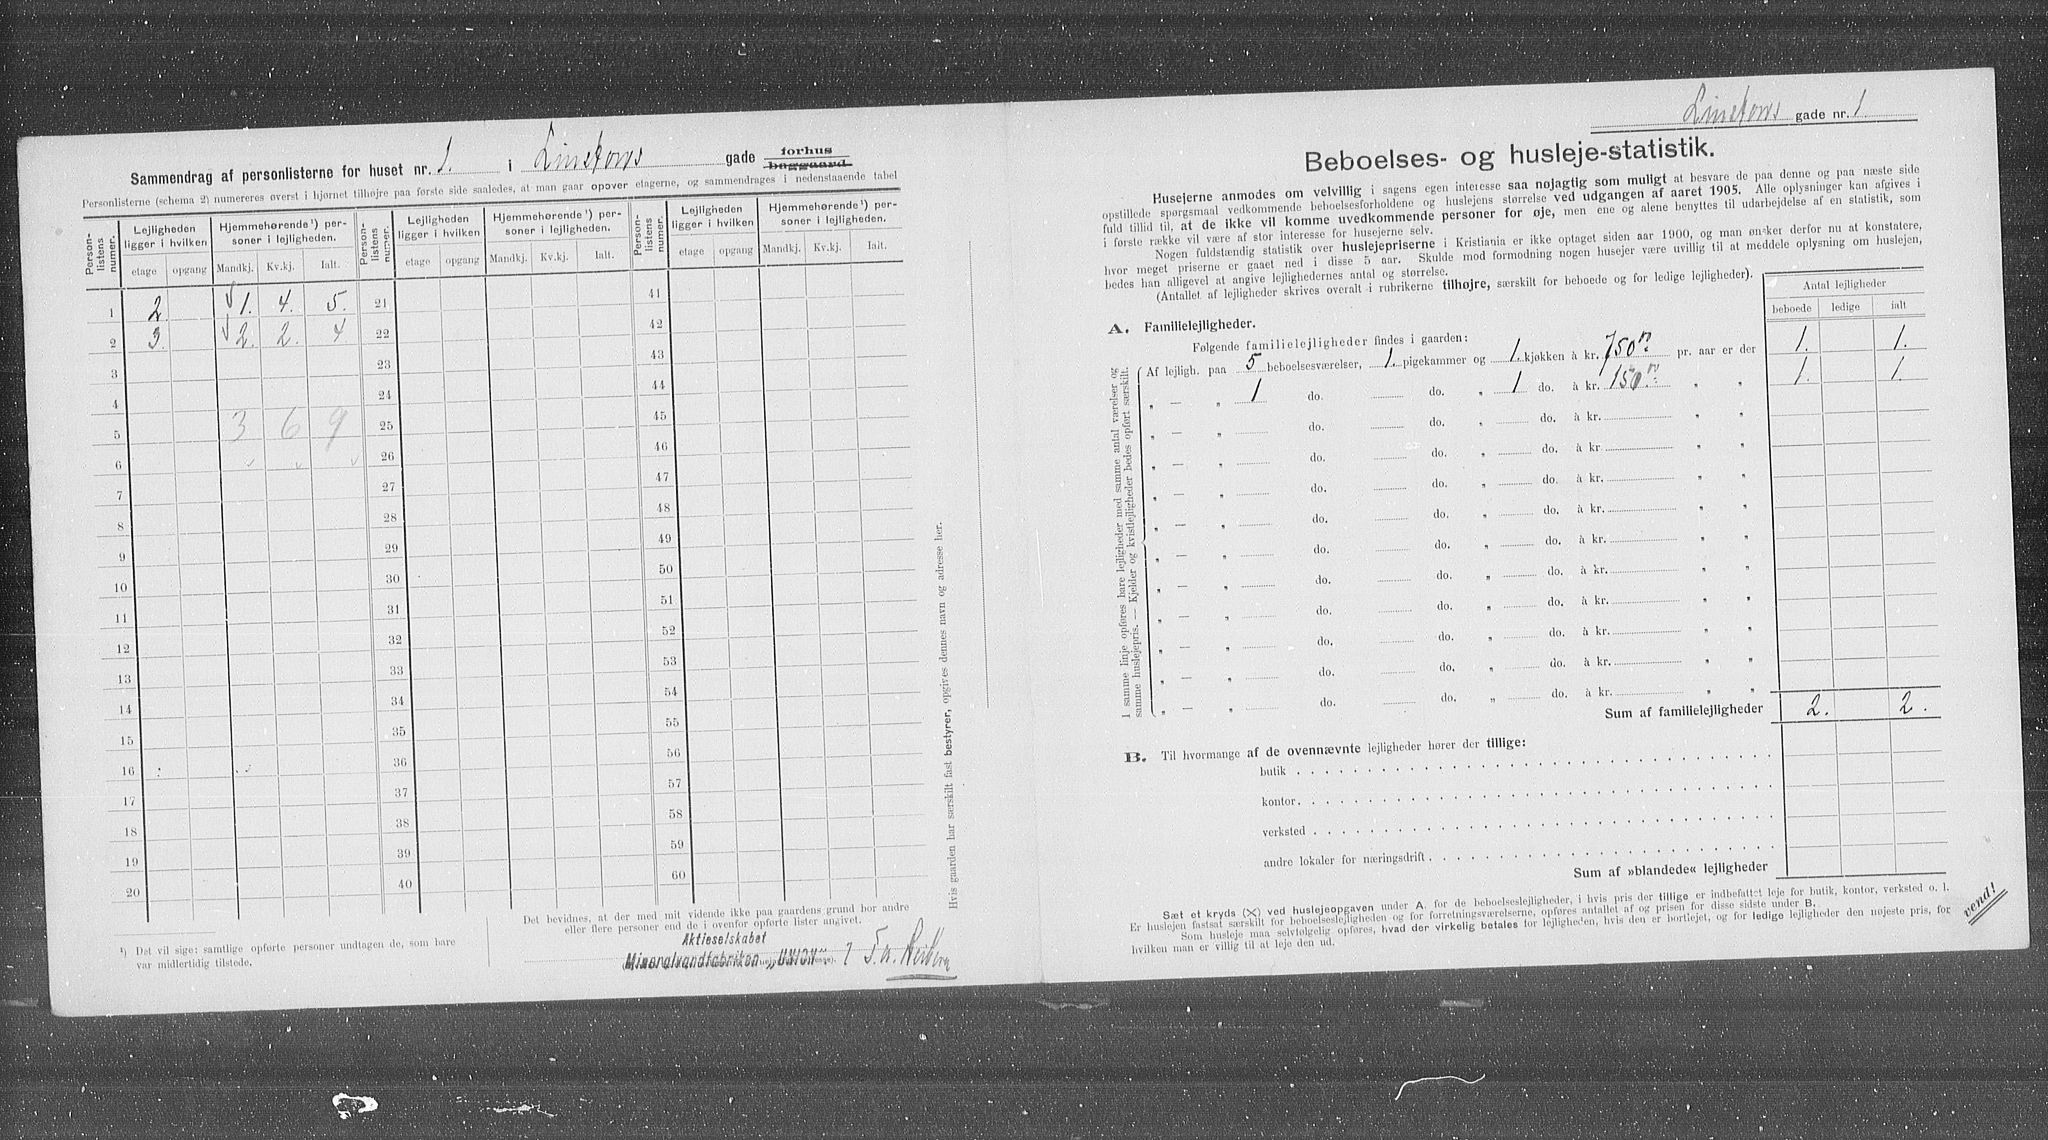 Sammendrag af personlisterne for huset nr. 1. i Linstows gade forhus baggaard.
Personlisterne (schema 2) numereres øverst i hjørnet tilhøjre paa første side saaledes, at man gaar opover etagerne, og sammendrages i nedenstaaende tabel
Person-listens numer. Lejligheden ligger i hvilken Hjemmehørende ¹) personer i lejligheden. Person-listens numer. Lejligheden ligger i hvilken Hjemmehørende ¹) personer i lejligheden. Person-listens numer. Lejligheden ligger i hvilken Hjemmehørende ¹) personer i lejligheden.
etage opgang Mandkj. Kv.kj. Ialt. etage opgang Mandkj. Kv.kj. Ialt. etage opgang Mandkj. Kv.kj. Ialt.
1 2 √1. 4. 5. 21 41
2 3. √2. 2. 4 22 42
3 23 43
4 24 44
5 3 6 9 25 45
6 26 46
7 27 47
8 28 48
9 29 49
10 30 50
11 31 51
12 32 52
13 33 53
14 34 54
15 35 55
16 36 56
17 37 57
18 38 58
19 39 59
20 40 60
¹) Det vil sige: samtlige opførte personer undtagen de, som bare
var midlertidig tilstede.
Det bevidnes, at der med mit vidende ikke paa gaardens grund bor andre
eller flere personer end de i ovenfor opførte lister angivet.
Aktieselskabet
Mineralvandfabriken „UNION"
Hvis gaarden har særskilt fast bestyrer, opgives dennes navn og adresse her.
Linstows gade nr. 1.
Beboelses- og husleje-statistik.
Husejerne anmodes om velvillig i sagens egen interesse saa nøjagtig som muligt at besvare de paa denne og paa næste side
opstillede spørgsmaal vedkommende beboelsesforholdene og huslejens størrelse ved udgangen af aaret 1905. Alle oplysninger kan afgives i
fuld tillid til, at de ikke vil komme uvedkommende personer for øje, men ene og alene benyttes til udarbejdelse af en statistik, som
i første række vil være af stor interesse for husejerne selv.
Nogen fuldstændig statistik over huslejepriserne i Kristiania er ikke optaget siden aar 1900, og man ønsker derfor nu at konstatere,
hvor meget priserne er gaaet ned i disse 5 aar. Skulde mod formodning nogen husejer være uvillig til at meddele oplysning om huslejen,
bedes han alligevel at angive lejlighedernes antal og størrelse.
(Antallet af lejligheder skrives overalt i rubrikerne tilhøjre, særskilt for beboede og for ledige lejligheder).
Antal lejligheder
beboede ledige ialt
A. Familielejligheder.
Følgende familielejligheder findes i gaarden:
I samme linje opføres bare lejligheder med samme antal værelser og
samme huslejepris. — Kjelder og kvistlejligheder bedes opført særskilt.
Af lejligh. paa 5 beboelsesværelser, 1. pigekammer og 1. kjøkken à kr. 750 pr. aar er der 1. 1.
„ — „ 1 do. do. „ 1 do. à kr. 150 „ „ 1. 1.
„ — „ do. do. „ do. à kr. „ „
„ — „ do. do. „ do. à kr. „ „
„ — „ do. do. „ do. à kr. „ „
„ — „ do. do. „ do. à kr. „ „
„ — „ do. do. „ do. à kr. „ „
„ — „ do. do. „ do. à kr. „ „
„ — „ do. do. „ do. à kr. „ „
„ — „ do. do. „ do. à kr. „ „
„ — „ do. do. „ do. à kr. „ „
„ — „ do. do. „ do. à kr. „ „
Sum af familielejligheder 2. 2.
B. Til hvormange af de ovennævnte lejligheder hører der tillige:
butik
kontor
verksted
andre lokaler for næringsdrift
Sum af »blandede« lejligheder
Sæt et kryds (X) ved huslejeopgaven under A. for de beboelseslejligheder, i hvis pris der tillige er indbefattet leje for butik, kontor, verksted o. l.
Er huslejen fastsat særskilt for beboelseslejligheden og for forretningsværelserne, opføres antallet af og prisen for disse sidste under B.
Som husleje maa selvfølgelig opføres, hvad der virkelig betales for lejligheden, hvis den er bortlejet, og for ledige lejligheder den nøjeste pris, for
hvilken man er villig til at leje den ud.
vend!